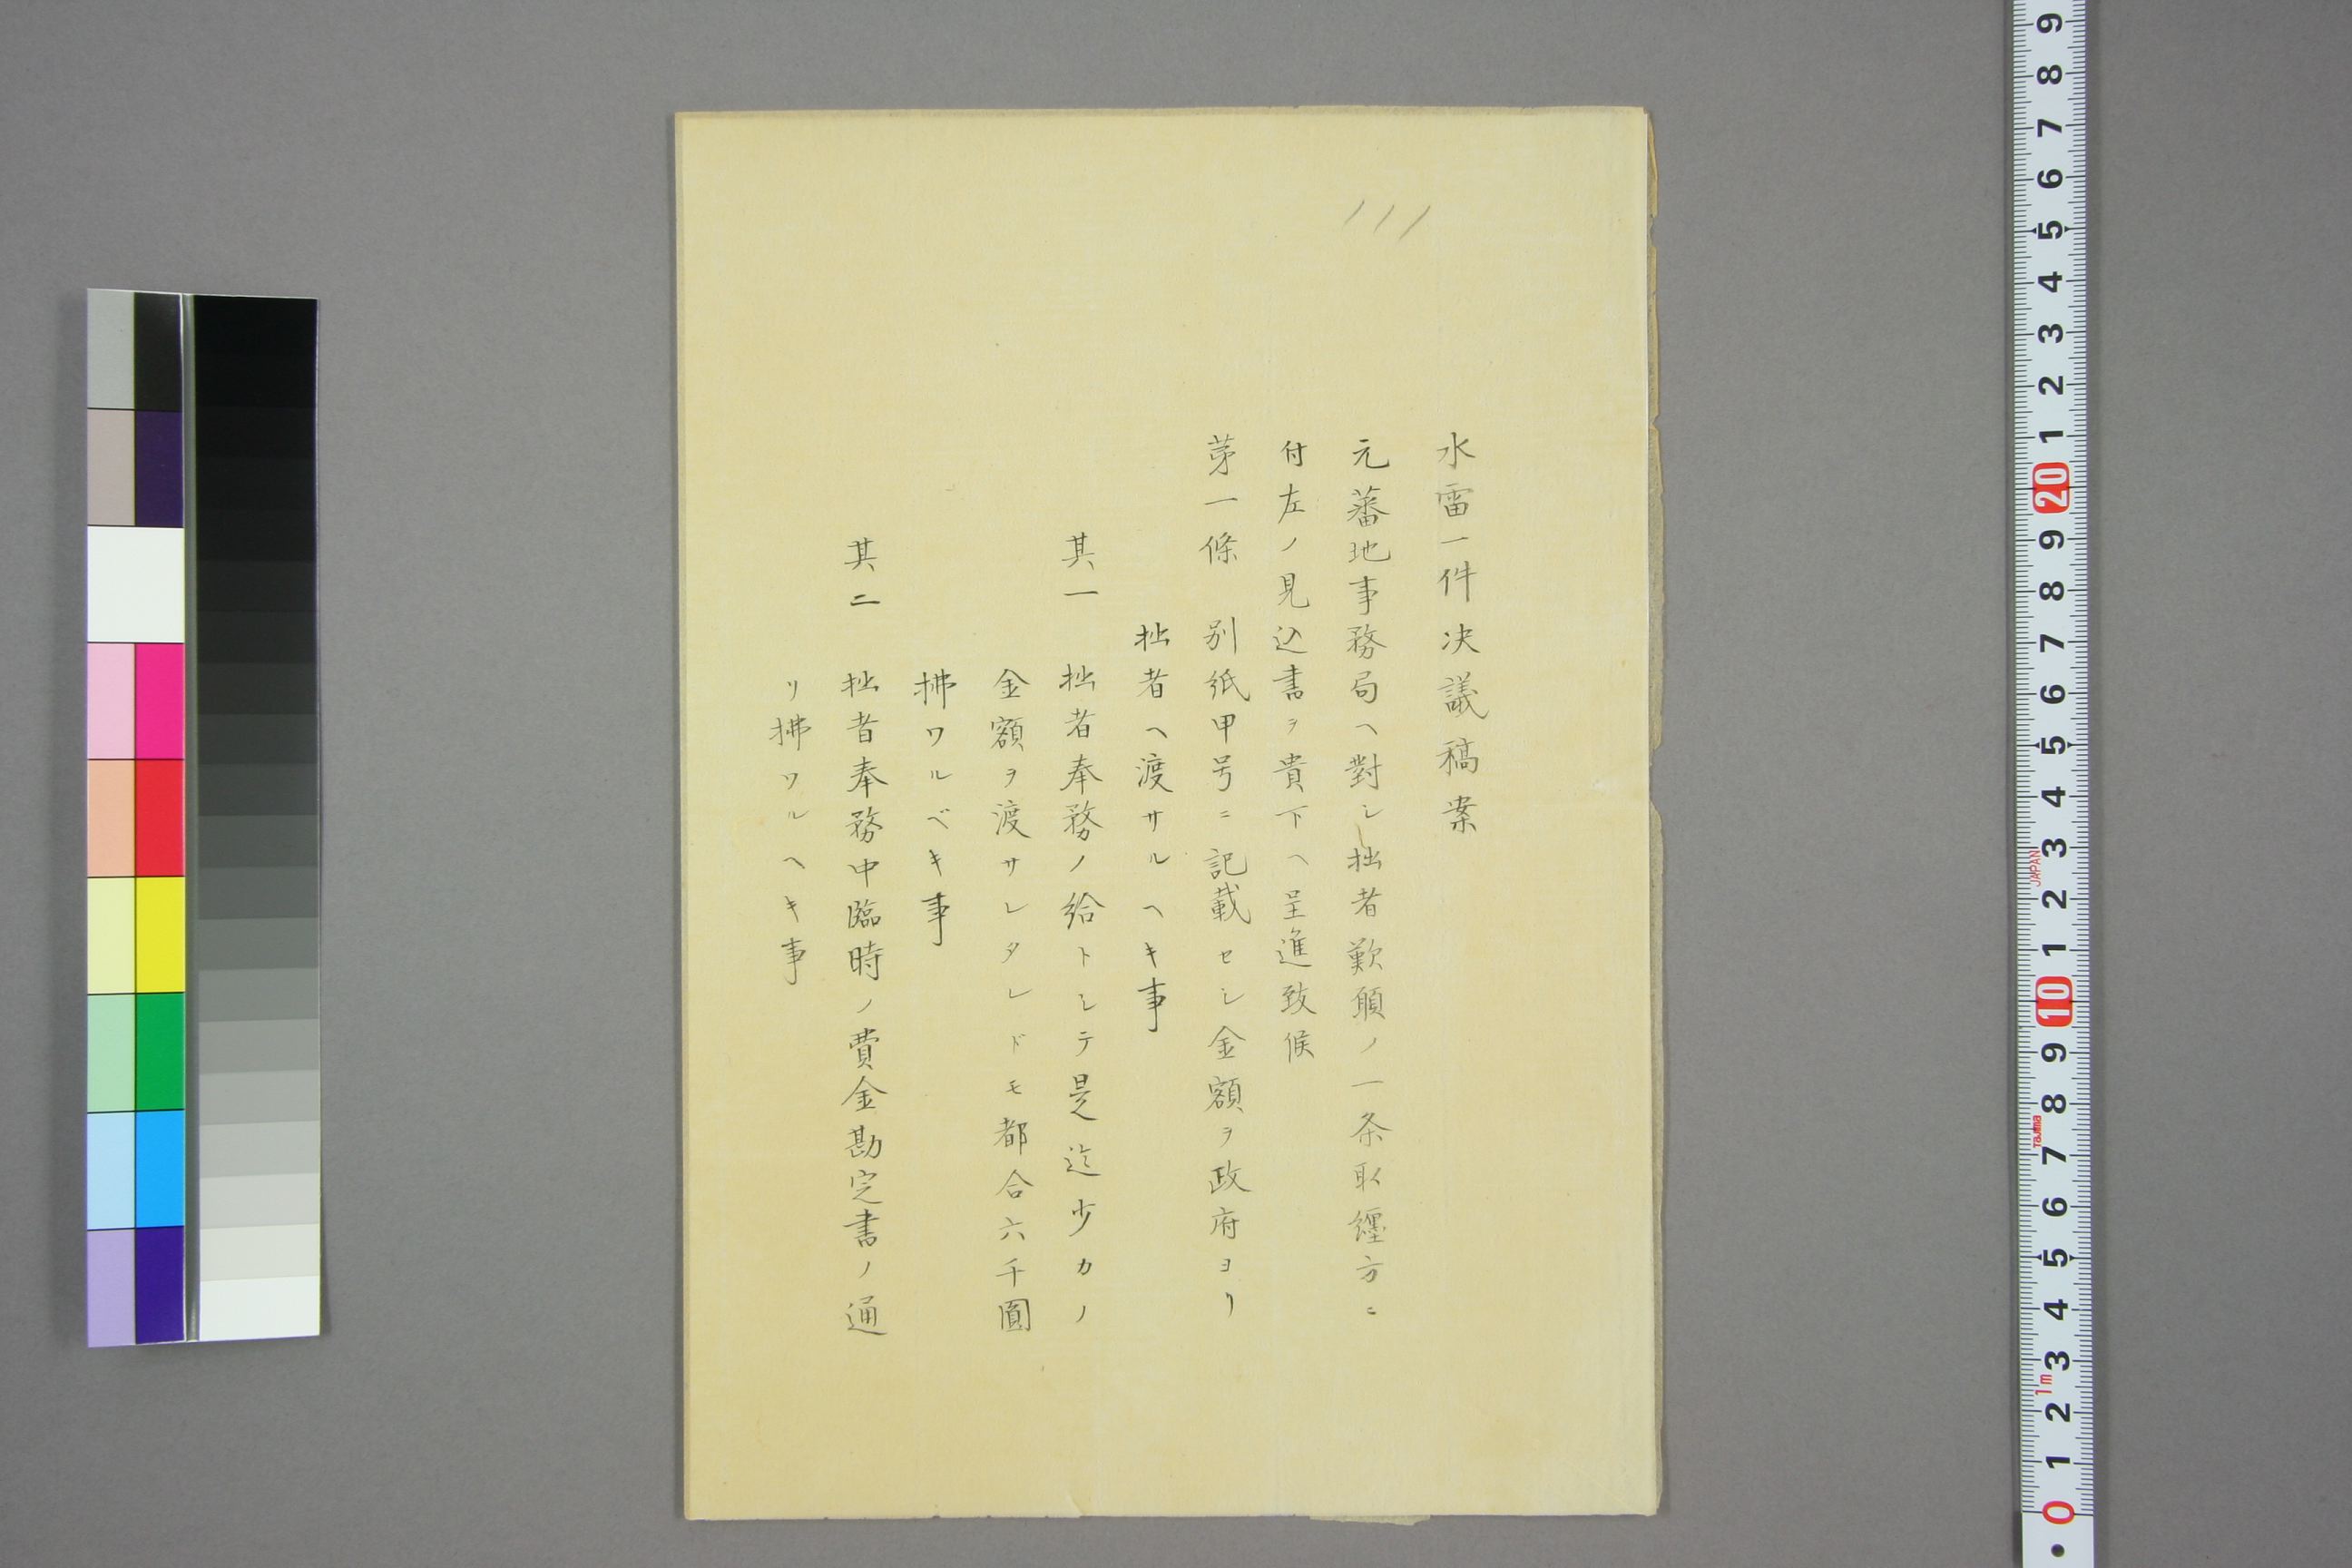 水雷一件决議稿案
元蕃地事務局ヘ對シ拙者歎願ノ一条取纒方ニ
付左ノ見込書ヲ貴下ヘ呈進致候
茅一條 別紙甲号ニ記載セシ金額ヲ政府ヨリ
拙者ヘ渡サルヘキ事
其一 拙者奉務ノ給トシテ是迄少カノ
金額ヲ渡サレタレドモ都合六千圓
拂ワルベキ事
其二 拙者奉務中臨時ノ費金勘定書ノ通
リ拂ワルヘキ事
111
9 8 7 6 5 4 3 2 1 20 9 8 7 6 5 4 3 2 1 10 9 8 7 6 5 4 3 2 1 0
JAPAN
Tajima
1m